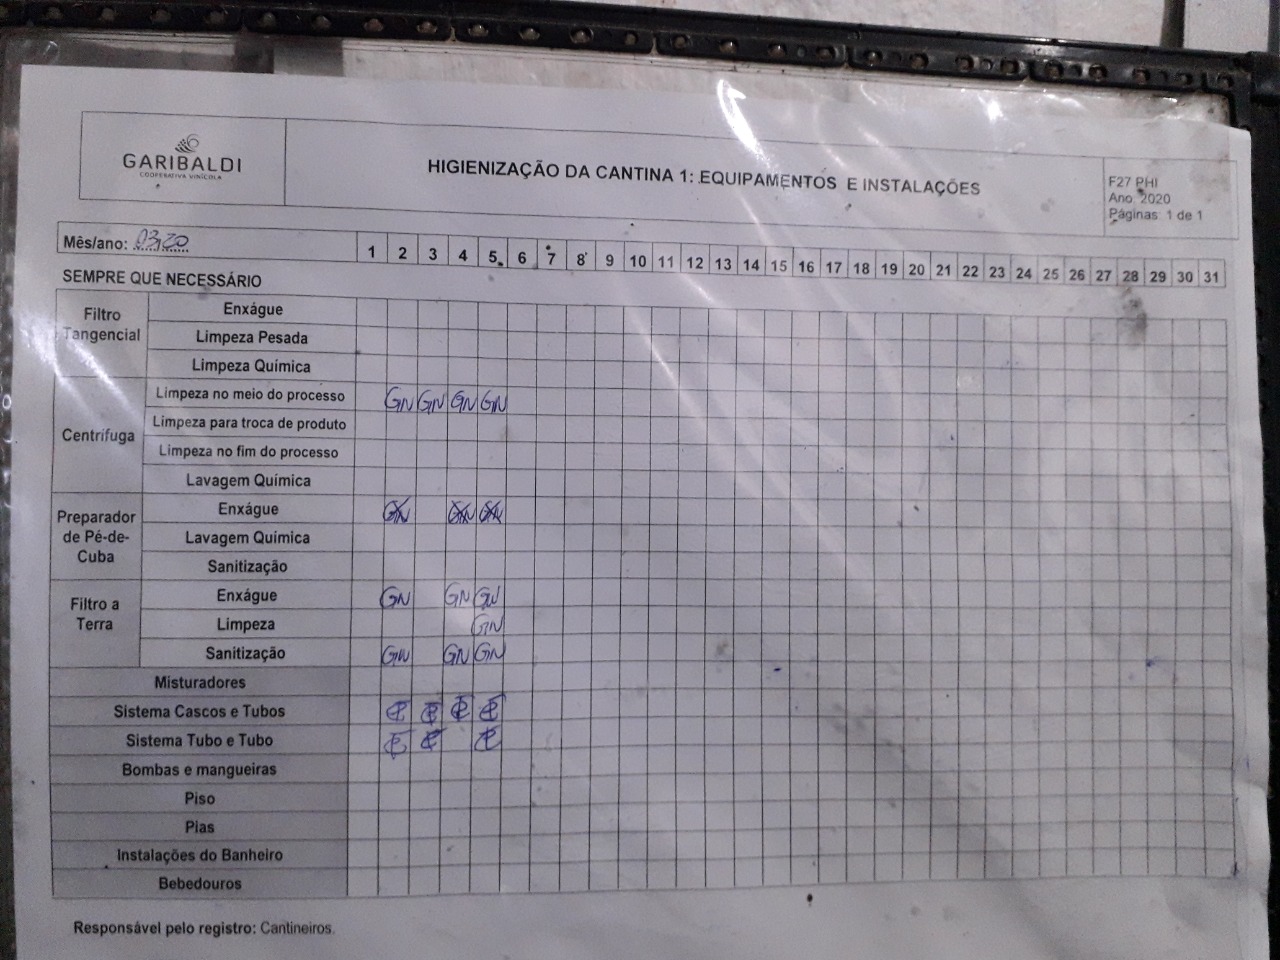 GARIBALDI
COOPERATIVA VINÍCOLA
HIGIENIZAÇÃO DA CANTINA 1: EQUIPAMENTOS E INSTALAÇÕES
F27 PHI
Ano: 2020
Páginas: 1 de 1
Mês/ano: 03,20
1 2 3 4 5 6 7 8 9 10 11 12 13 14 15 16 17 18 19 20 21 22 23 24 25 26 27 28 29 30 31
SEMPRE QUE NECESSÁRIO
Filtro
Tangencial
Enxágue
Limpeza Pesada
Limpeza Química
Centrífuga
Limpeza no meio do processo GN GN GN GN
Limpeza para troca de produto
Limpeza no fim do processo
Lavagem Química
Preparador
de Pé-de-
Cuba
Enxágue GN GN GN
Lavagem Química
Sanitização
Filtro a
Terra
Enxágue GN GN GN
Limpeza GN
Sanitização GN GN GN
Misturadores
Sistema Cascos e Tubos
Sistema Tubo e Tubo
Bombas e mangueiras
Piso
Pias
Instalações do Banheiro
Bebedouros
Responsável pelo registro: Cantineiros.